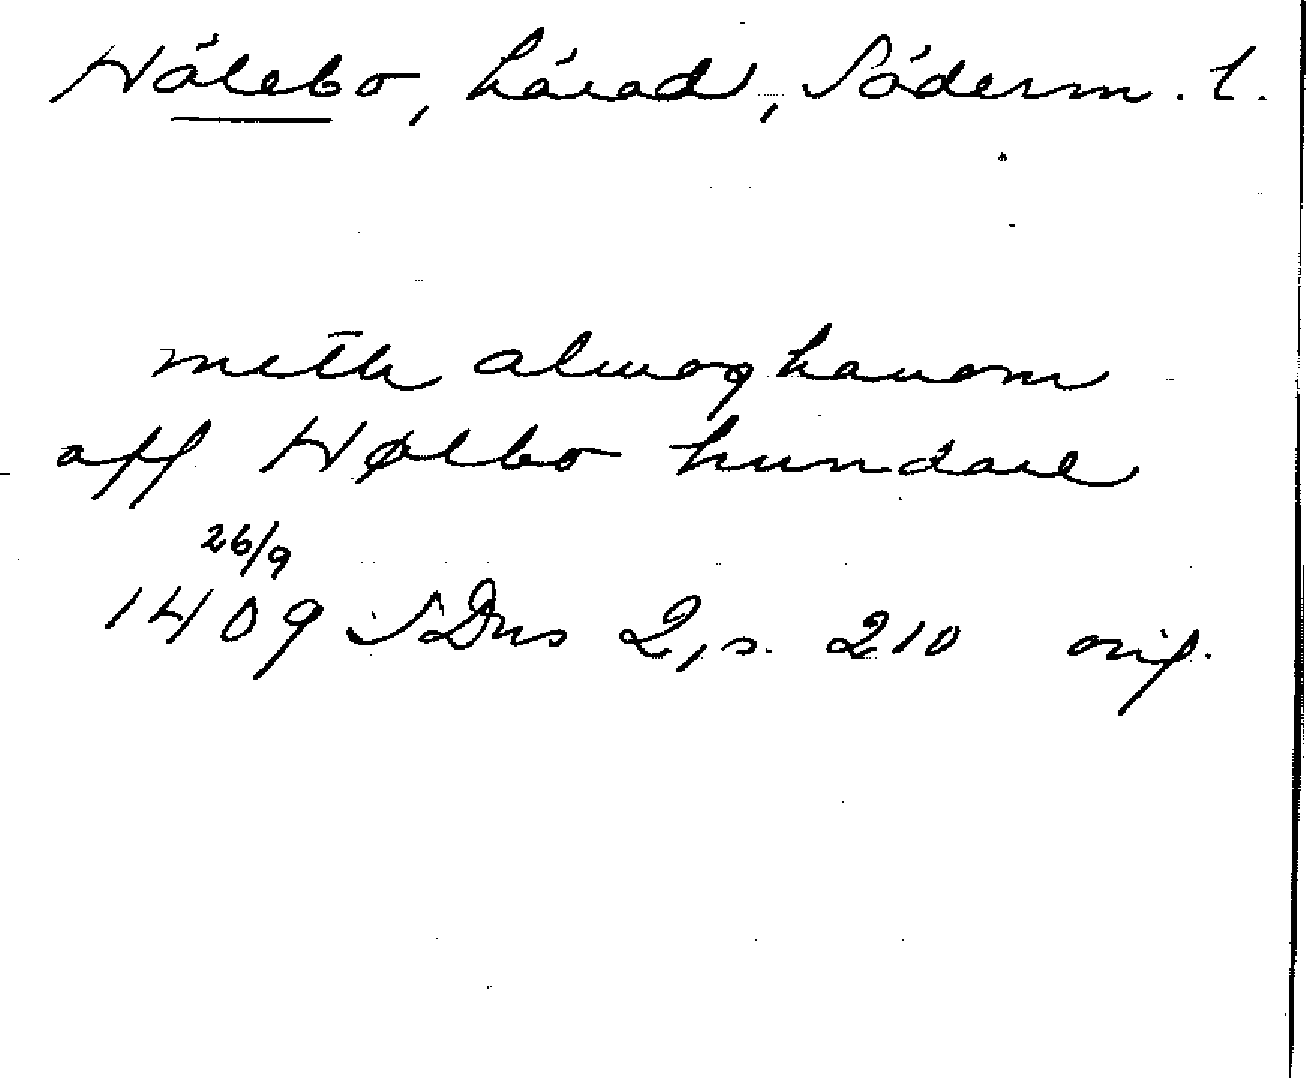 Hölebo, härad, Söderm. l.
meth almoghanom
aff Hølbo hundare
26/9
1409 SDns 2, s. 210 orig.